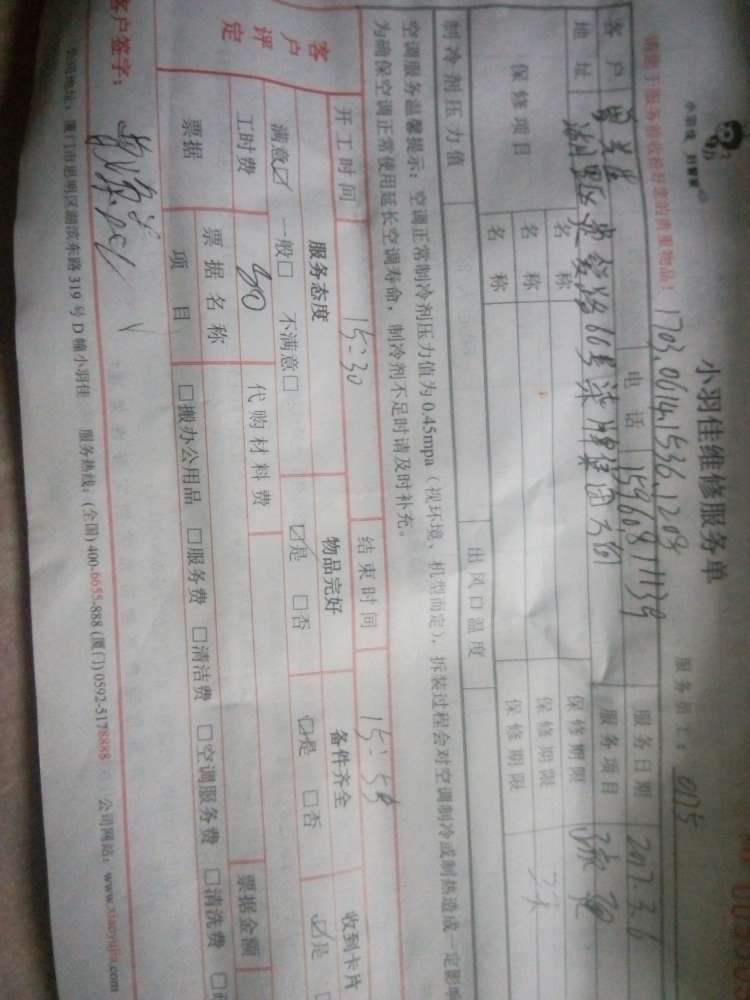 小羽佳 好管家
小羽佳维修服务单
服务员工: 0175
请您于服务前收检好您的贵重物品! 1703.0614.1536.1209
客户 电话 15960811139 服务日期 2017.3.6
地址 湖里区 66号 集团 服务项目
保修项目 名称 保修期限
名称 保修期限
名称 保修期限
制冷剂压力值 出风口温度
空调服务温馨提示: 空调正常制冷剂压力值为 0.45mpa (视环境、机型而定), 拆装过程会对空调制冷或制热造成一定影响
为确保空调正常使用延长空调寿命, 制冷剂不足时请及时补充。
开工时间 15:30 结束时间 15:59
客户评定 服务态度 物品完好 备件齐全 收到卡片
满意☑ 一般□ 不满意□ ☑是 □否 ☑是 □否 ☑是
工时费 80 代购材料费
票据 票据名称 票据金额
项目 □搬办公用品 □服务费 □清洁费 □空调服务费 □清洗费
客户签字:
公司地址: 厦门市思明区湖滨东路 319 号 D 幢小羽佳 服务热线: (全国) 400-6655-888 (厦门) 0592-5178888 公司网站: www.xiaoyujia.com